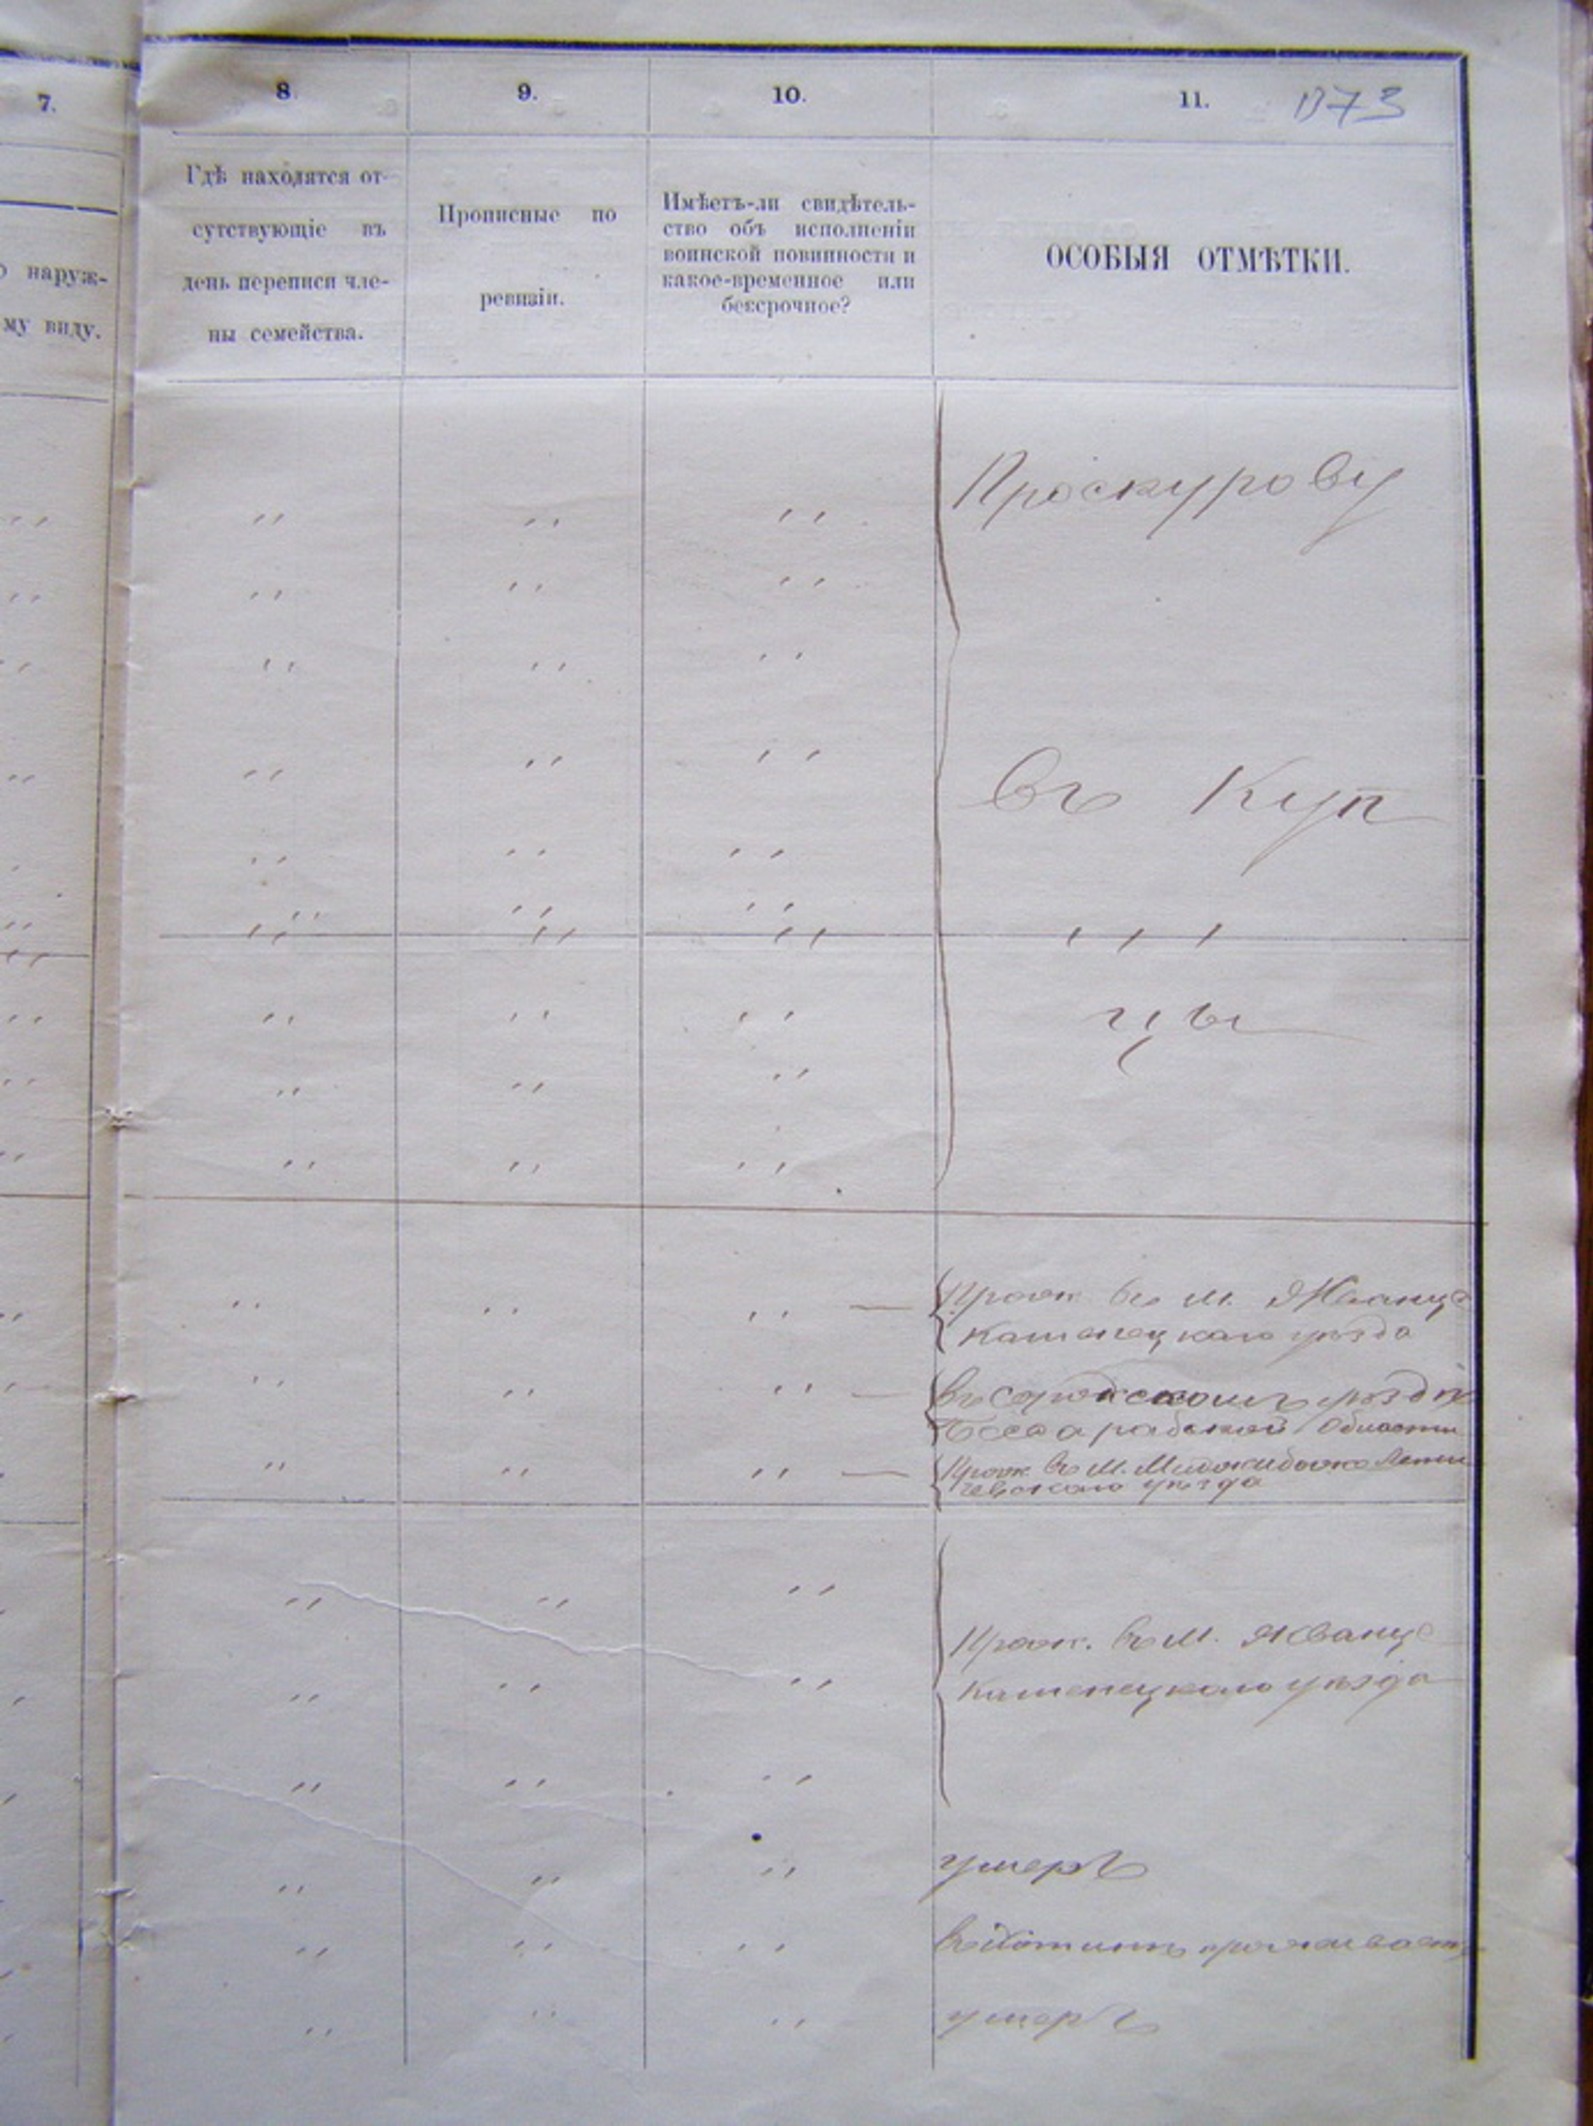 7. 8. 9. 10. 11. 1073
наруж-
му виду.
Гдѣ находятся от-
сутствующіе въ
день переписи чле-
ны семейства.
Прописные по
ревизіи.
Имѣетъ-ли свидѣтель-
ство объ исполненіи
воинской повинности и
какое-временное или
бессрочное?
ОСОБЫЯ ОТМѢТКИ.
Проскурову
въ Куп
цы
Прож. въ м. Жванцѣ
Каменецкаго уѣзда
въ Сорокскомъ уѣздѣ
Бессарабской Области
Прож. въ М. Меджибожѣ Лети
чевскаго уѣзда
Прож. въ М. Жванцѣ
Каменецкаго уѣзда
умеръ
въ Хотинѣ проживаетъ
умеръ